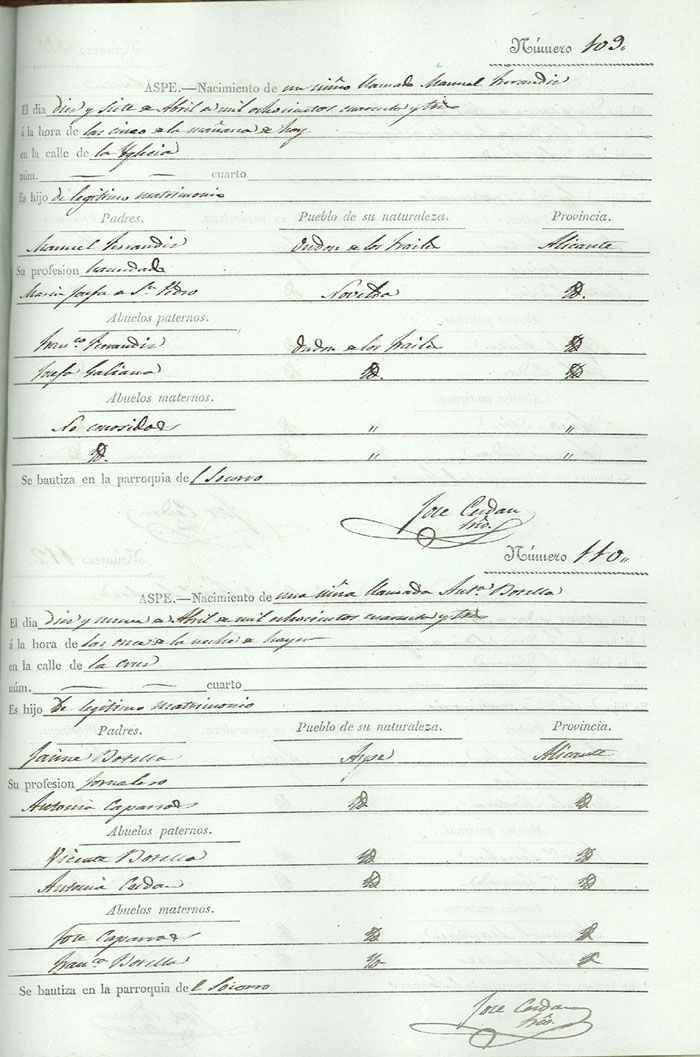 Número 109.
ASPE.—Nacimiento de un niño llamado Manuel Ferrandiz
El dia diez y siete de Abril de mil ochocientos cuarenta y tres
á la hora de las cinco de la mañana de hoy
en la calle de la Yglecia
núm. — — cuarto
Es hijo de legitimo matrimonio
Padres. Pueblo de su naturaleza. Provincia.
Manuel Ferrandiz Ondon de los Frailes Alicante
Su profesion hacendado
Maria Josefa de Sn. Pedro Novelda Yd.
Abuelos paternos.
Franco. Ferrandiz Ondon de los Frailes Yd.
Josefa Galiana Yd. Yd.
Abuelos maternos.
No conosidos " "
Yd. " "
Se bautiza en la parroquia del Socorro
Jose Cerdan
Srio.
Número 110.
ASPE.—Nacimiento de una niña llamada Anta. Botella
El dia diez y nueve de Abril de mil ochocientos cuarenta y tres
á la hora de las once de la noche de hayer
en la calle de la Cruz
núm. — — cuarto
Es hijo de legitimo matrimonio
Padres. Pueblo de su naturaleza. Provincia.
Jaime Botella Aspe Alicante
Su profesion Jornalero
Antonia Caparros Yd. Yd.
Abuelos paternos.
Vicente Botella Yd. Yd.
Antonia Cerdan Yd. Yd.
Abuelos maternos.
Jose Caparros Yd. Yd.
Franca. Botella Yd. Yd.
Se bautiza en la parroquia del Socorro
Jose Cerdan
Srio.